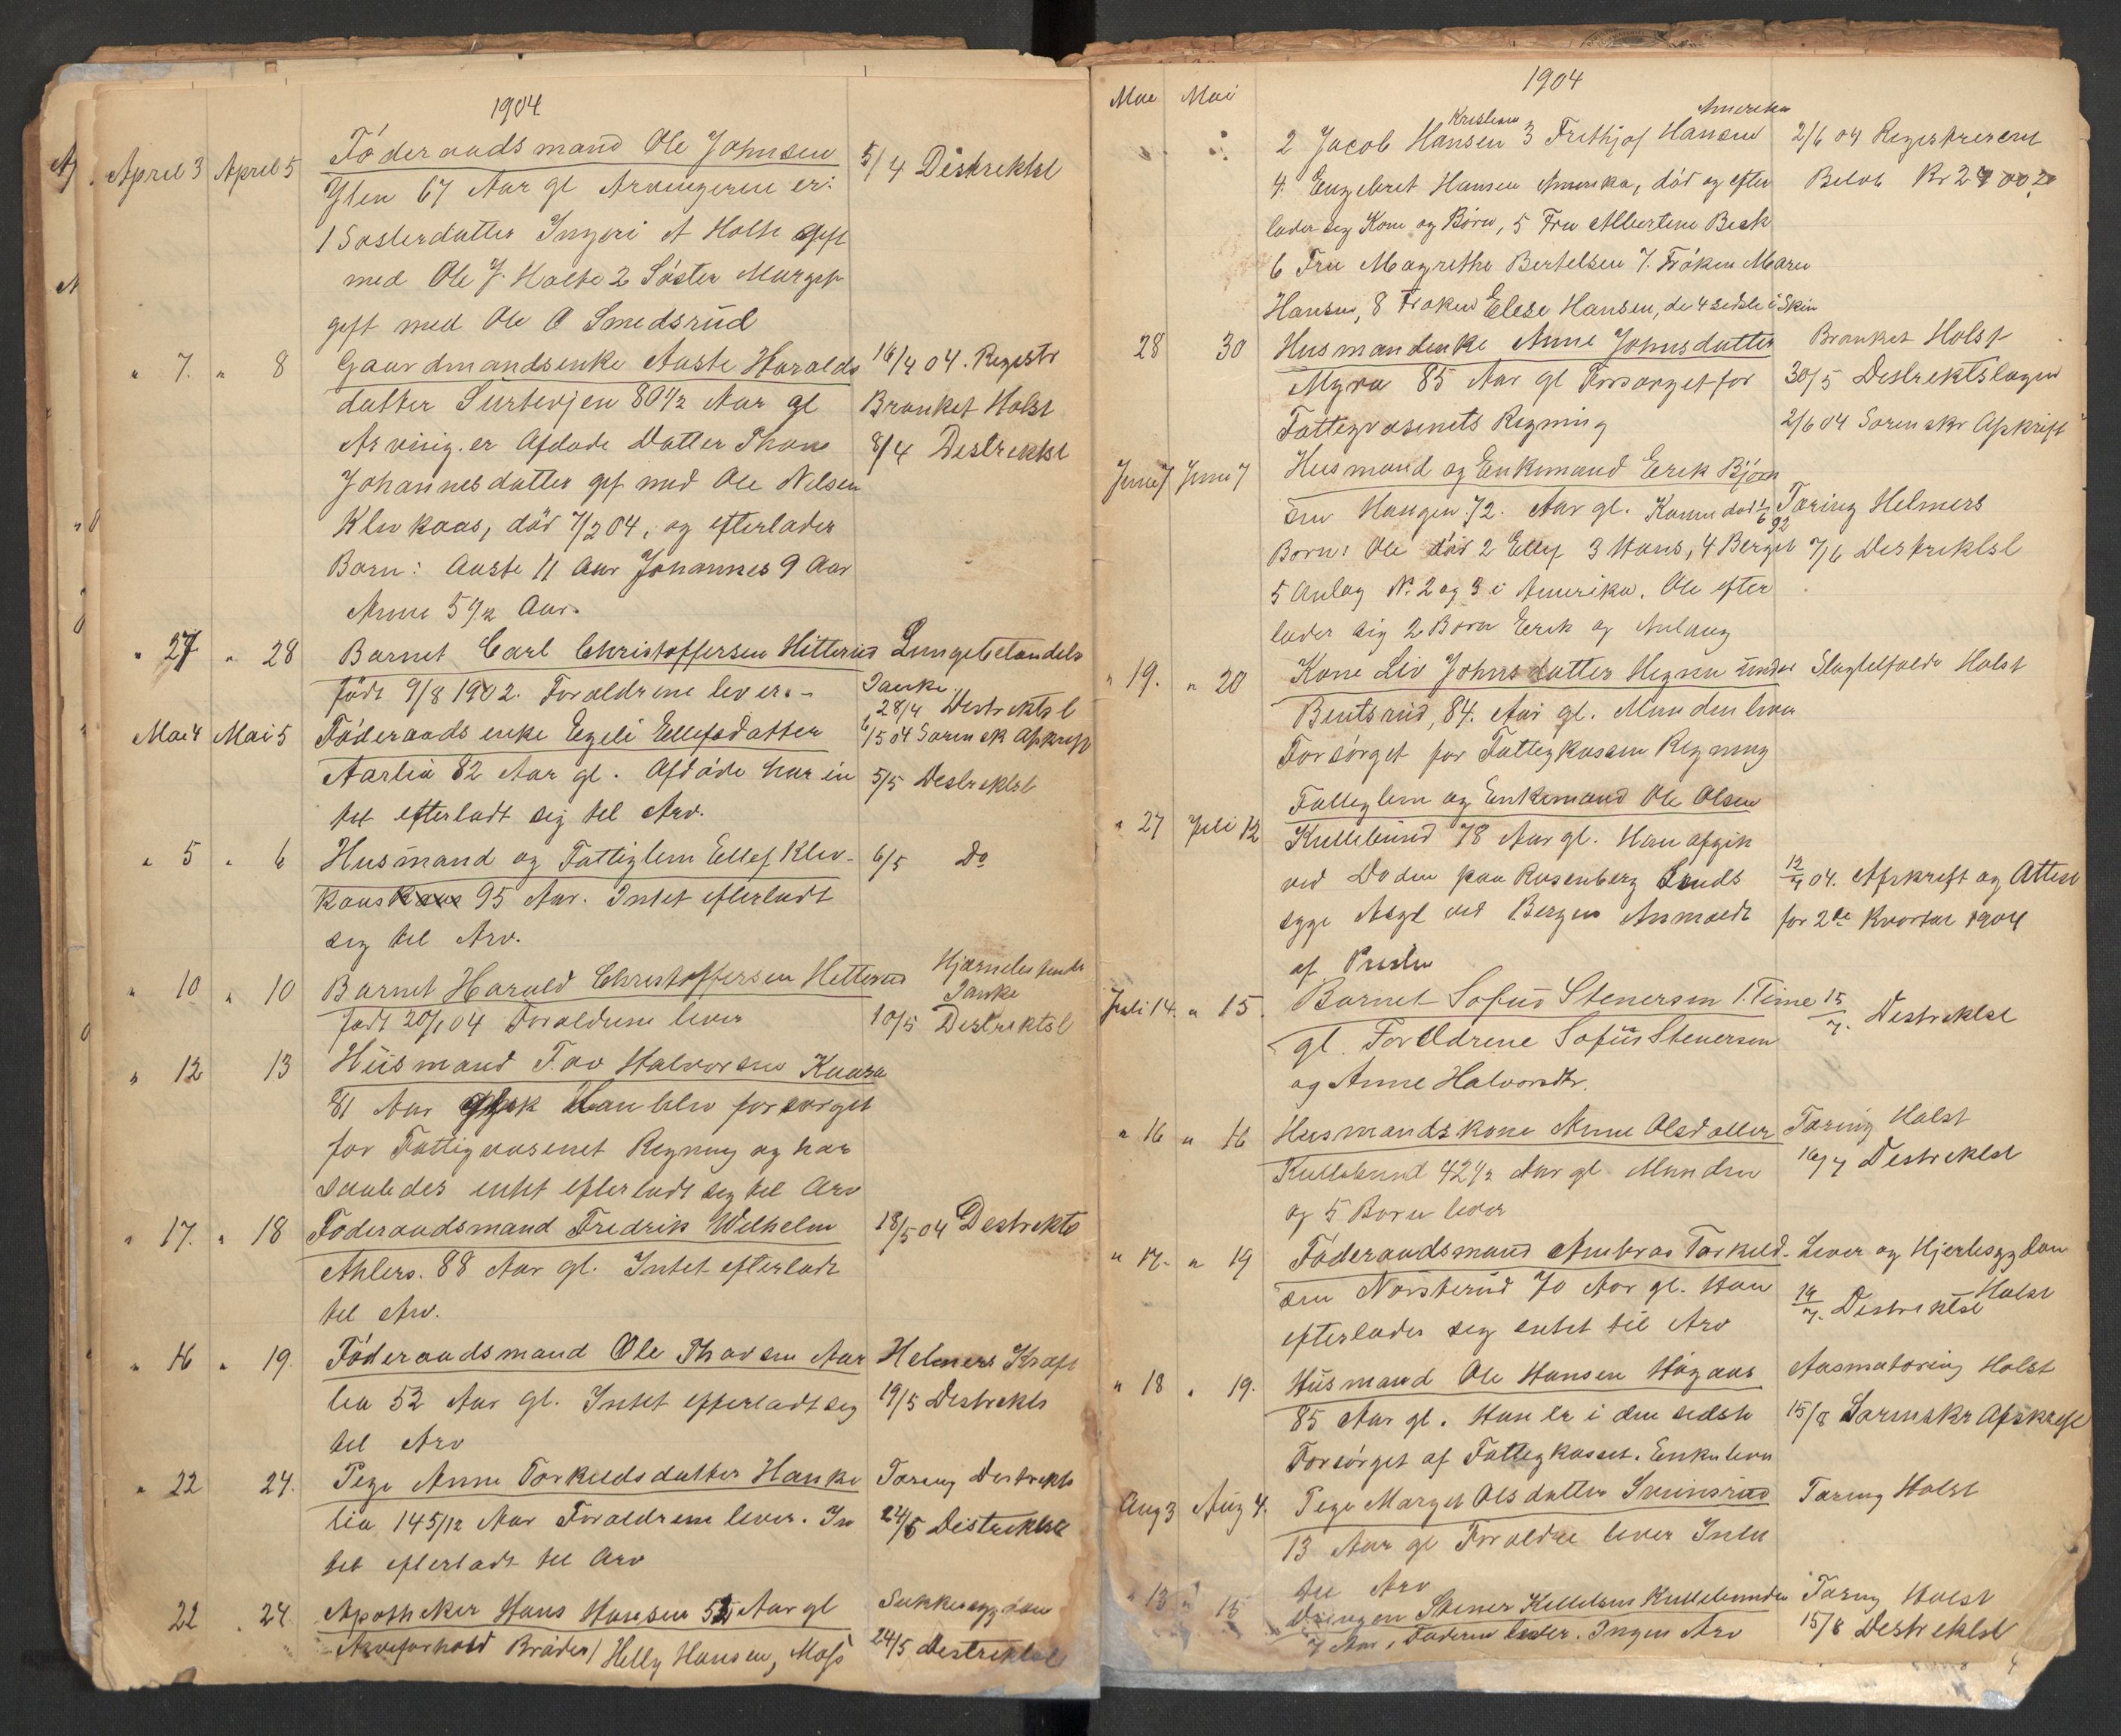 1904
April 3 April 5 Föderaadsmand Ole Johnsen 5/4 Distriktsl
67 Aar gl Arvingerne er:
1 Søsterdatter Ingeri A Holte gift
med Ole J. Holte 2 Söster Margit
gift med Ole O Smedsrud
" 7. " 8 Gaardmandsenke Aaste Haralds 16/4 04. Registr
datter Surtevjen 80 1/2 Aar gl Bronket Holst
Arving. er Afdøde Datter Thone 8/4 Destriktsl
Johannesdatter gif med Ole Nilsen
Klevkaas, död 7/2 04, og efterlader
Børn: Aaste 11 Aar Johannes 9 Aar
Anne 5 1/2 Aar.
" 27 " 28 Barnet Carl Christoffersen Hitterud Lungebetændels
født 9/8 1902. Forældrene lever. - Janke.
28/4 Destriktsl
Mai 4 Mai 5 Föderaads enke Egeli Ellefsdatter 6/5 04 Sorensk Afskrift
Aarlia 82 Aar gl. Afdøde har in 5/5 Destriktsl
tet efterladt sig til Arv.
" 5 " 6 Husmand og Fattiglem Ellef Klev- 6/5 Do
kaas 95 Aar. Intet efterladt
sig til Arv.
" 10 " 10 Barnet Harald Christoffersen Hitterud Hjernebetænd
Janke
født 20/1 04 Forældrene lever 10/5 Destriktsl
" 12 13 Husmand Tov Halvorsen Kaasa
81 Aar Han blev forsørget
for Fattigvæsenet Regning og har
saaledes intet efterladt sig til Arv
" 17. " 18 Föderaadsmand Fredrik Wilhelm 18/5 04 Destrikts
Ahlers. 88 Aar gl. Intet efterladt
til Arv.
" 16 " 19. Föderaadsmand Ole Thovsen Aar Helmers Kræft
lia 52 Aar gl. Intet efterladt sig 19/5 Destrikts
til Arv
" 22 24. Pige Anne Torkildsdatter Hanke Tæring Destrikts
lia 14 5/12 Aar Forældrene lever. In 24/5 Distriktsl
tet efterladt til Arv
22 " 24 Apotheker Hans Hansen 52 Aar gl Sukkersygdom
Arveforhold Brödre 1 Helly Hansen, Moss 24/5 Destriktsl
1904
Mai Mai
Kristiania Amerika
2 Jacob Hansen 3 Frithjof Hansen 2/6 04 Registreret
4. Engebret Hansen Amerika, död og efter Beløb Kr 2900
lader sig Kone og Børn, 5 Fru Albertine Beck
6 Fru Magrethe Bertelsen 7. Fröken Maren
Hansen, 8 Frøken Elese Hansen, de 4 sidste i Skien
28 30 Husmandenke Anne Johnsdatter Bronket Holst
Myra 85 Aar gl Forsørget for 30/5 Destriktslægen
Fattigvæsenets Regning 2/6 04 Sorenskr Afskrift
Juni 7 Juni 7 Husmand og Enkemand Eerik Björn
sen Haugen 72. Aar gl. Konen død 1/6 92 Tæring Helmers
Børn: Ole död 2 Ellef 3 Hans, 4 Berget 7/6 Destriktsl
5 Anlog No. 2 og 3 i Amerika. Ole efter
lader sig 2 Børn Eerik og Anlaug
" 19. " 20 Kone Liv Johnsdatter Hegna under Slagtelfælde Holst
Bentsrud, 84. Aar gl. Manden lever
Forsörget for Fattigkassen Regning
" 27 Juli 12 Fattiglem og Enkemand Ole Olsen
Kullebund 78 Aar gl. Han afgik
ved Døden paa Rosenberg Sinds 12/7 04. Afskrift og Attest
syge Asyl ved Bergen Anmeldt for 2de Kvartal 1904
af Presten
Juli 14. " 15. Barnet Sofus Stenersen 1. Time 15/7. Destriktsl
gl. Forældrene Sofus Stenersen
og Anne Halvorsdtr.
" 16 " 16 Husmandskone Anne Olsdatter Tæring Holst
Kullebund 42 1/2 Aar gl. Manden 16/7 Destriktsl
og 5 Børn lever
" 17. " 19 Föderaadsmand Ambros Torkild- Lever og Hjertesygdom
Holst
sen Norsterud 70 Aar gl. Han 19/7. Destriktsl
efterlader sig intet til Arv
" 18 " 19. Husmand Ole Hansen Högaas Aasmatæring Holst
85 Aar gl. Han er i den sidste 15/8 Sorenskr Afskrift
Forsörget af Fattigkasset. Enken lever
Aug 3 Aug 4. Pige Margit Olsdatter Svinsrud Tæring Holst
13 Aar gl Forældre lever Intet
til Arv
" 13 " 15 Drengen Stener Kittelsen Kullebunden Tæring Holst
7 Aar, Faderen lever. Ingen Arv 15/8 Destriktsl